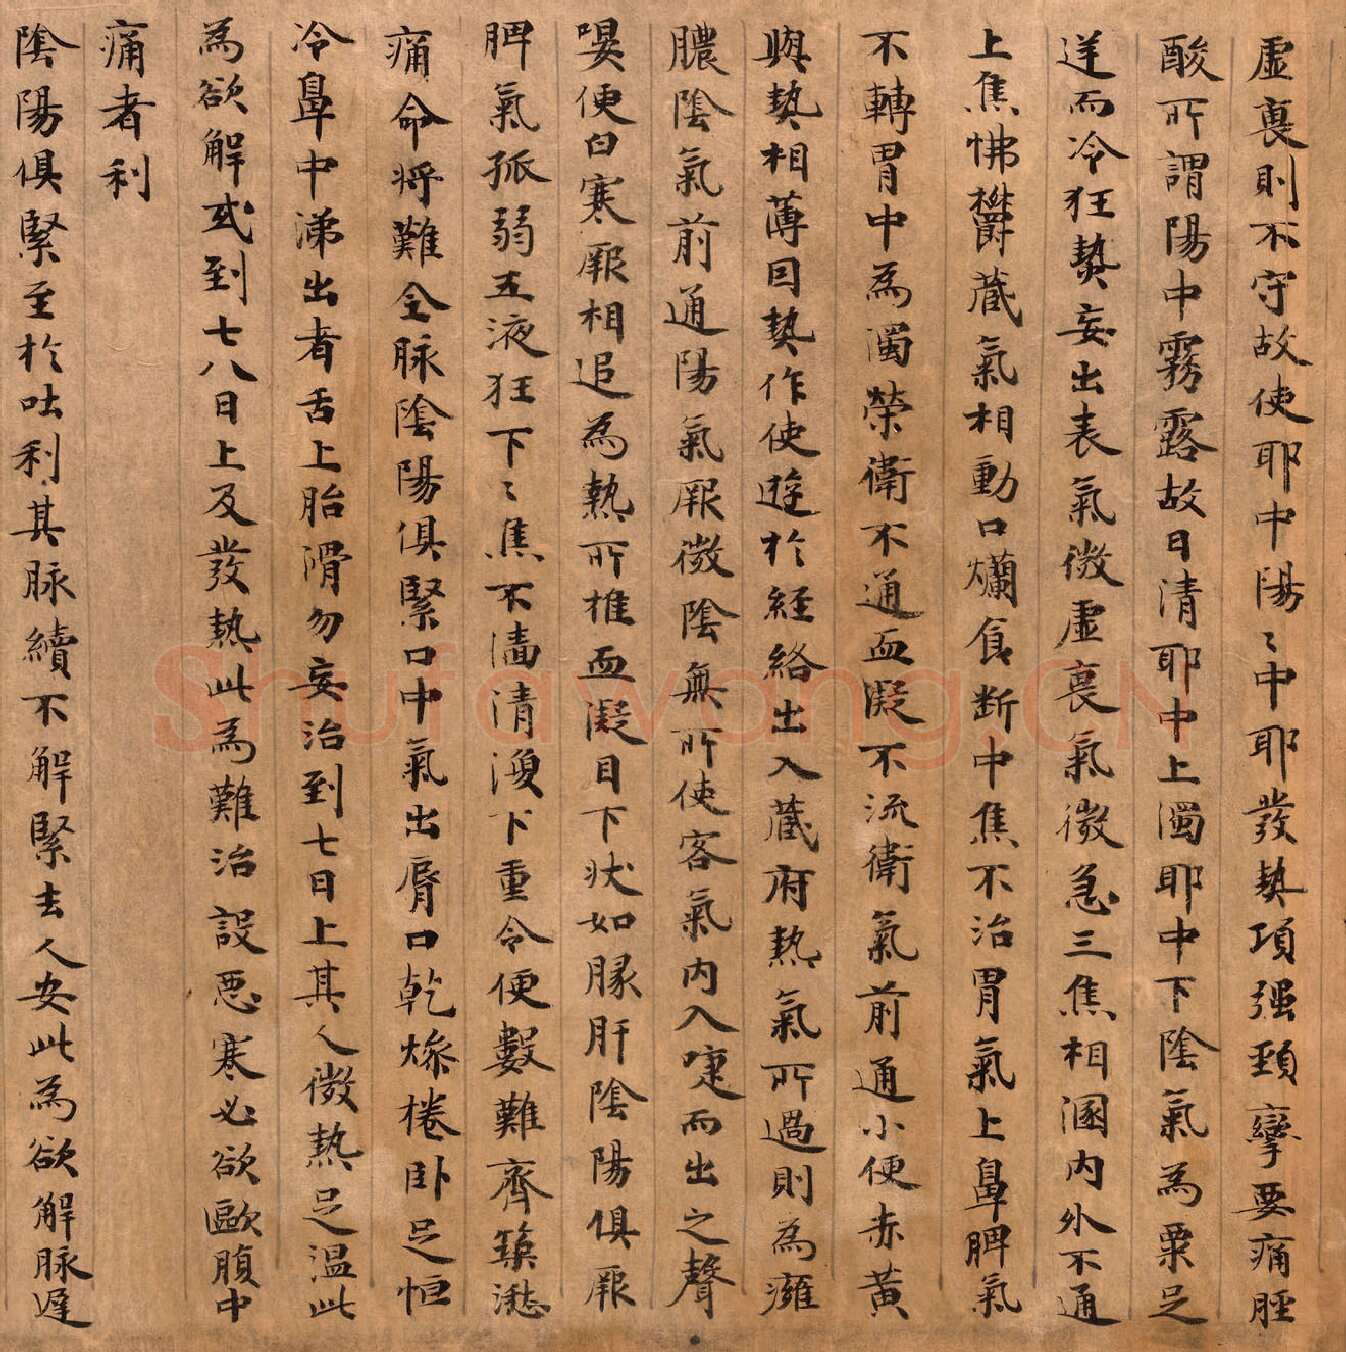 虛裏則不守故使耶中陽〻中耶發熱項强頚攣要痛脛
酸所謂陽中霧露故曰清耶中上濁耶中下陰氣為㮚足
逆而冷狂熱妄出表氣微虛裏氣微急三焦相溷内外不通
上焦怫欝蔵氣相動口爛食断中焦不治胃氣上鼻脾氣
不轉胃中為濁榮衛不通血凝不流衛氣前通小便赤黄
與熱相薄因熱作使遊於経絡出入蔵府熱氣所過則為癰
膿陰氣前通陽氣厥微陰無所使客氣内入嚏而出之聲
嗢便白寒厥相追為熱所推血凝自下状如豚肝陰陽俱厥
脾氣孤弱五液狂下〻焦不濇清溲下重令便數難齊築湫
痛命将難全脉陰陽俱緊口中氣出脣口乾燥棬卧足恒
冷鼻中涕出者舌上胎滑勿妄治到七日上其人微熱足温此
為欲解或到七八日上反發熱此為難治設惡寒必欲歐腹中
痛者利
陰陽俱緊至於吐利其脉續不解緊去人安此為欲解脉遲
Shufawang.CN